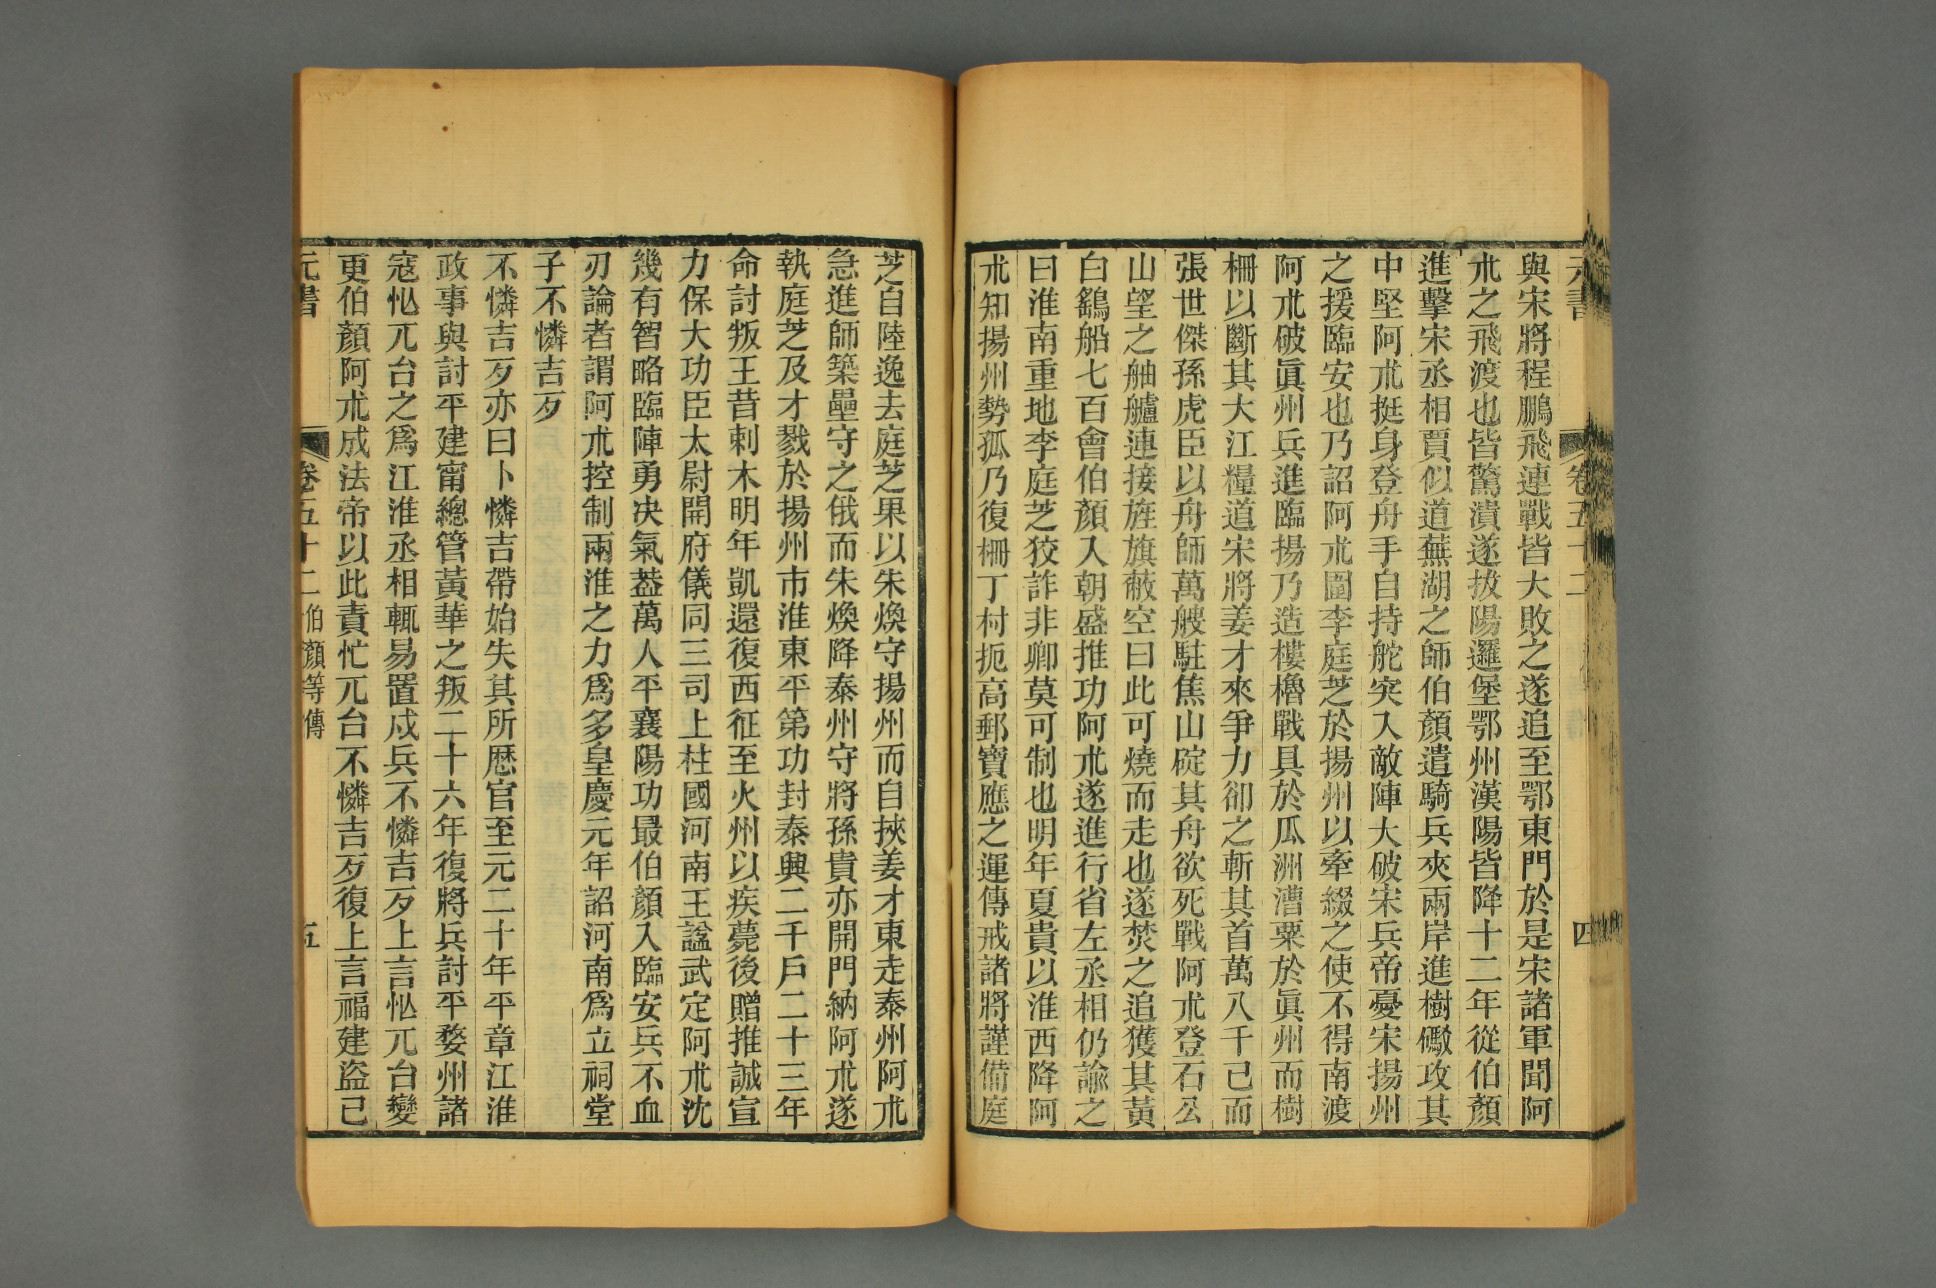 元書 卷五十二 四
與宋將程鵬飛連戰皆大敗之遂追至鄂東門於是宋諸軍聞阿
朮之飛渡也皆驚潰遂拔陽邏堡鄂州漢陽皆降十二年從伯顏
進擊宋丞相賈似道蕪湖之師伯顏遣騎兵夾兩岸進樹礮攻其
中堅阿朮挺身登舟手自持舵突入敵陣大破宋兵帝憂宋揚州
之援臨安也乃詔阿朮圖李庭芝於揚州以牽綴之使不得南渡
阿朮破眞州兵進臨揚乃造樓櫓戰具於瓜洲漕粟於眞州而樹
柵以斷其大江糧道宋將姜才來爭力卻之斬其首萬八千已而
張世傑孫虎臣以舟師萬艘駐焦山碇其舟欲死戰阿朮登石公
山望之舳艫連接旌旗蔽空曰此可燒而走也遂焚之追獲其黃
白鷂船七百會伯顏入朝盛推功阿朮遂進行省左丞相仍諭之
曰淮南重地李庭芝狡詐非卿莫可制也明年夏貴以淮西降阿
朮知揚州勢孤乃復柵丁村扼高郵寶應之運傳戒諸將謹備庭
芝自陸逸去庭芝果以朱煥守揚州而自挾姜才東走泰州阿朮
急進師築壘守之俄而朱煥降泰州守將孫貴亦開門納阿朮遂
執庭芝及才戮於揚州市淮東平第功封泰興二千戶二十三年
命討叛王昔剌木明年凱還復西征至火州以疾薨後贈推誠宣
力保大功臣太尉開府儀同三司上柱國河南王諡武定阿朮沈
幾有智略臨陣勇決氣蓋萬人平襄陽功最伯顏入臨安兵不血
刃論者謂阿朮控制兩淮之力爲多皇慶元年詔河南爲立祠堂
子不憐吉歹
不憐吉歹亦曰卜憐吉帶始失其所歷官至元二十年平章江淮
政事與討平建甯總管黃華之叛二十六年復將兵討平婺州諸
寇忙兀台之爲江淮丞相輒易置戍兵不憐吉歹上言忙兀台變
更伯顏阿朮成法帝以此責忙兀台不憐吉歹復上言福建盜已
元書 卷五十二 伯顏等傳 五